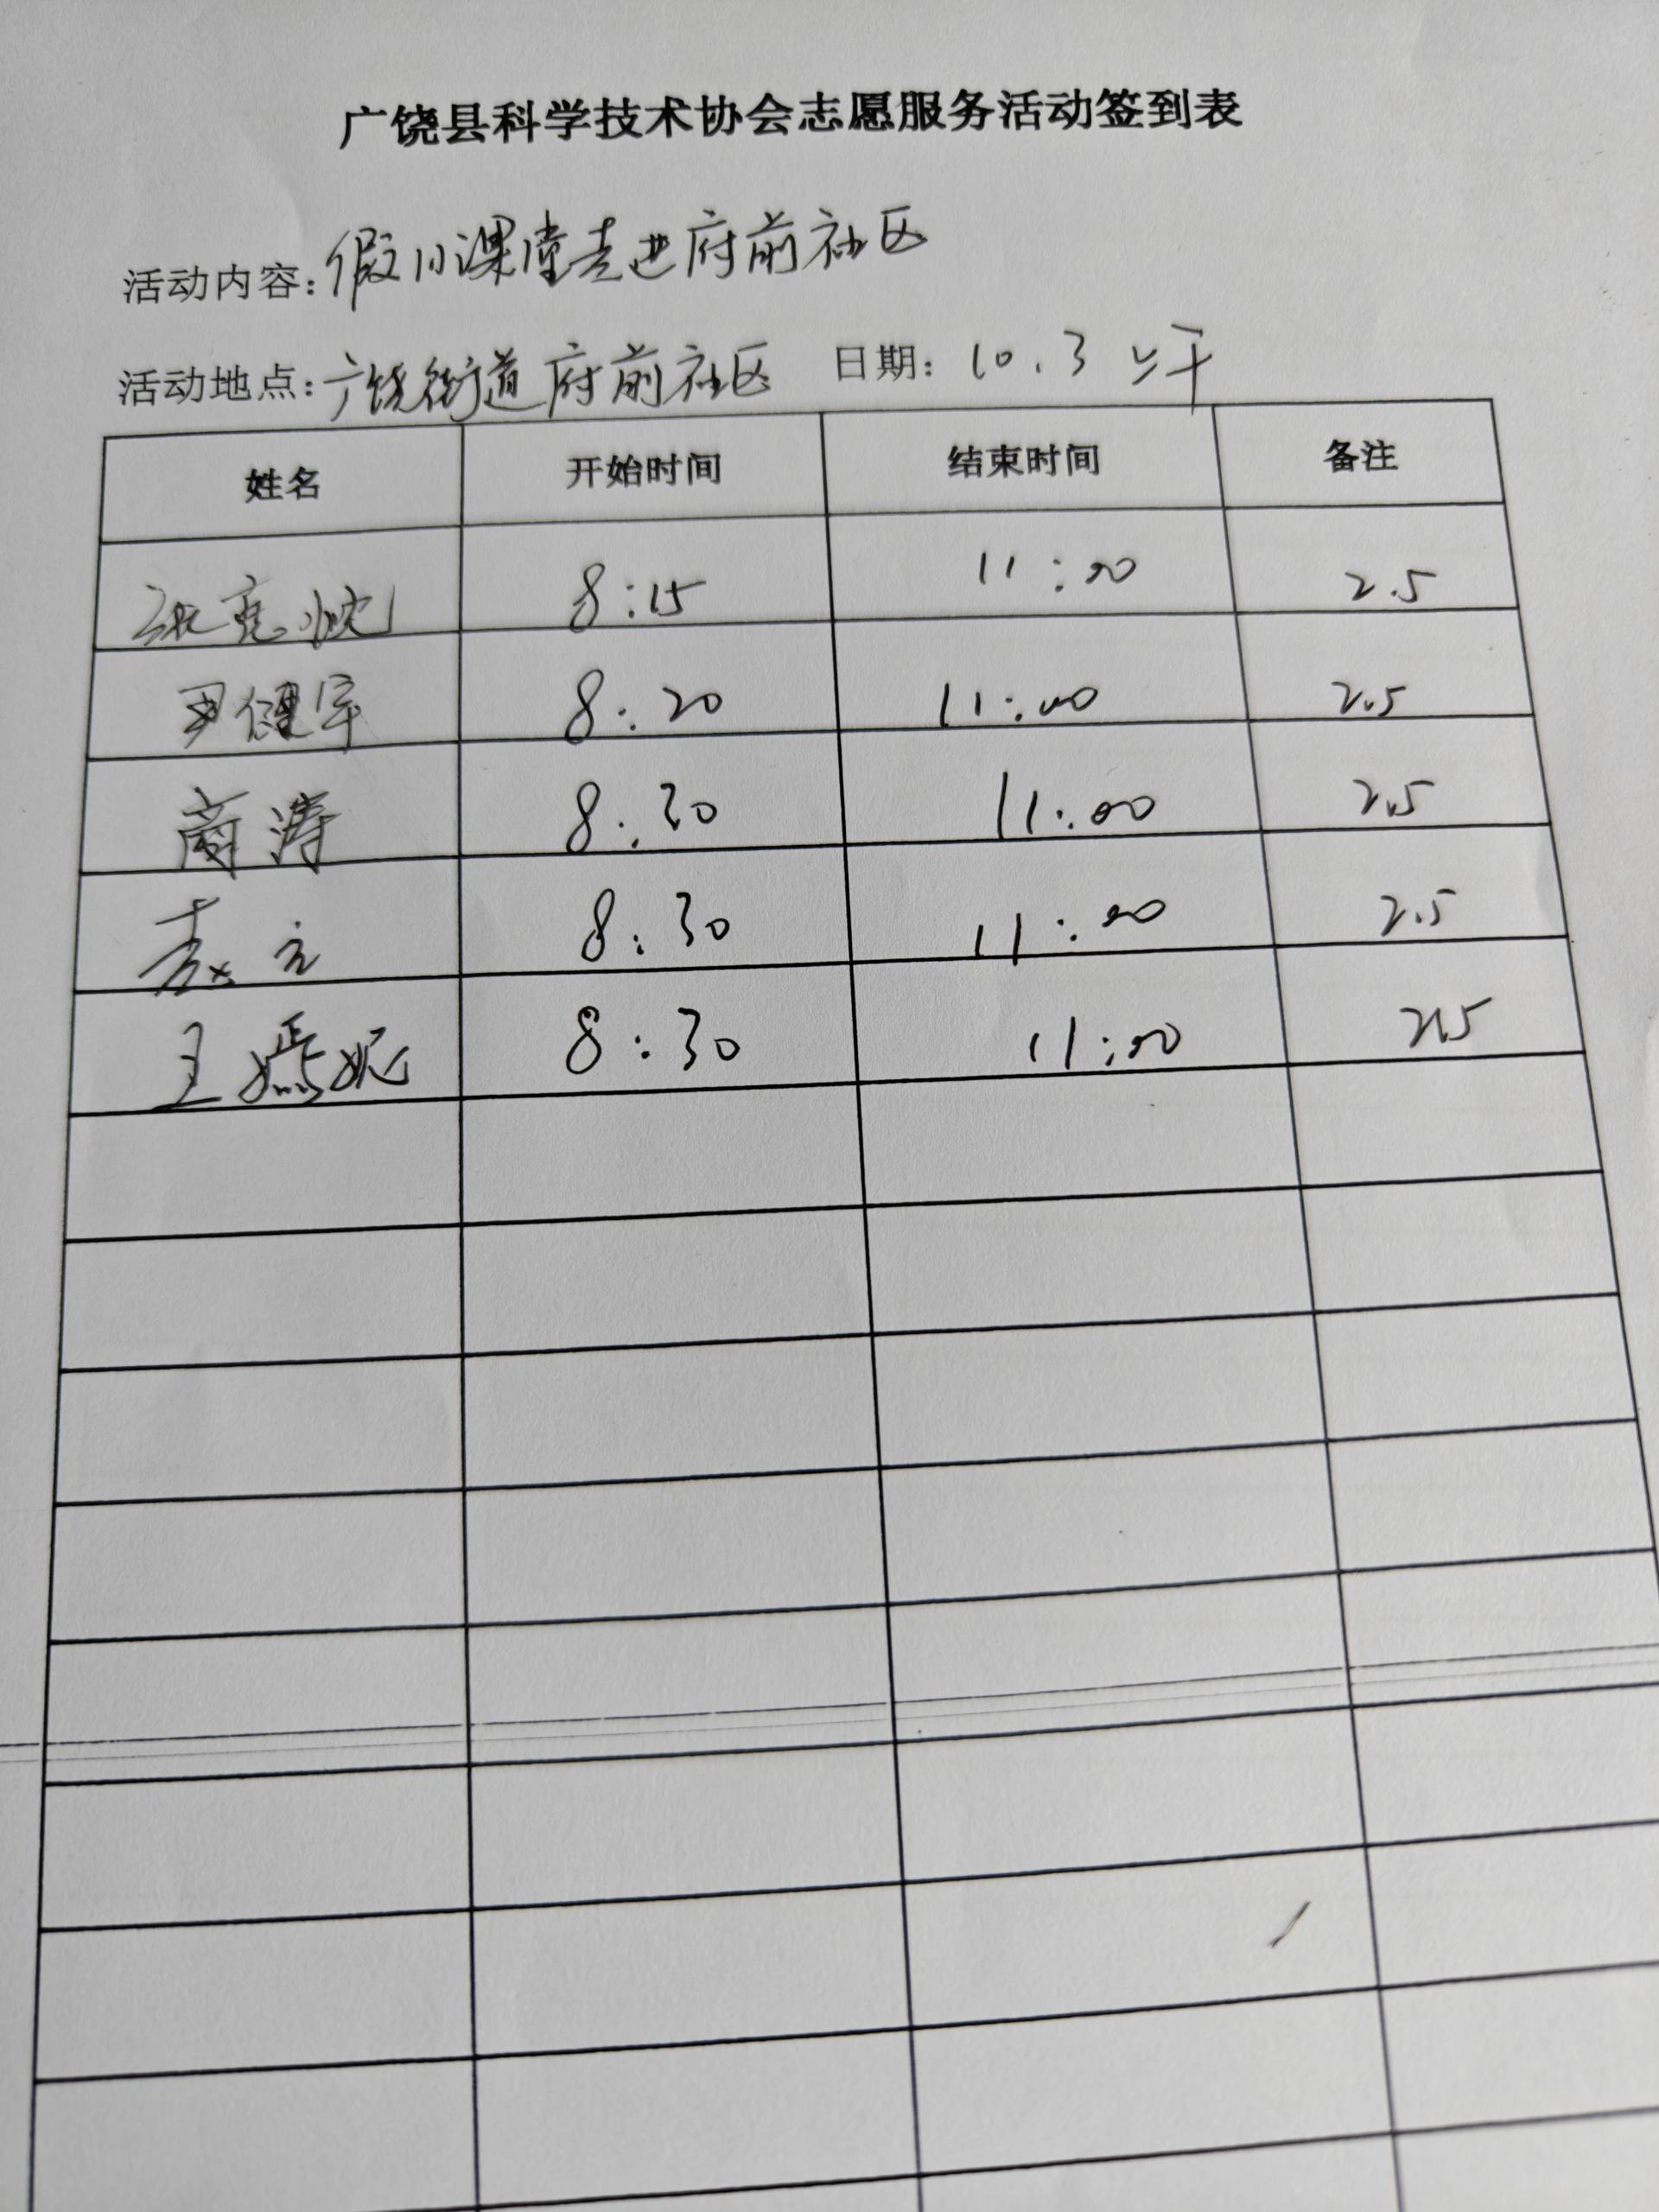 广饶县科学技术协会志愿服务活动签到表
活动内容:假小课堂走进府前社区
活动地点:广饶街道府前社区 日期:10.3 上午
姓名 开始时间 结束时间 备注
8:15 11:00 2.5
尹健宇 8:20 11:00 2.5
商涛 8:30 11:00 2.5
8:30 11:00 2.5
王嫣妮 8:30 11:00 2.5